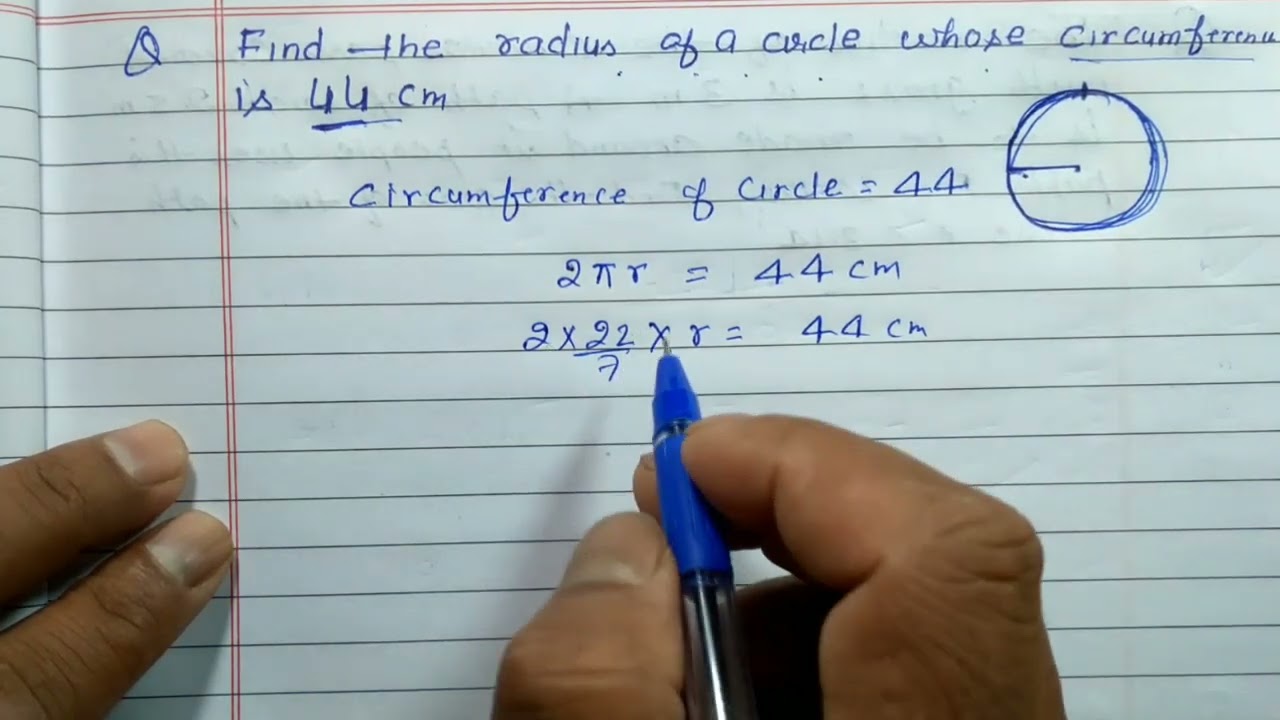 Q Find the radius of a circle whose circumference
is 44 cm
Circumference of circle = 44
2πr = 44 cm
2 × 22/7 × r = 44 cm